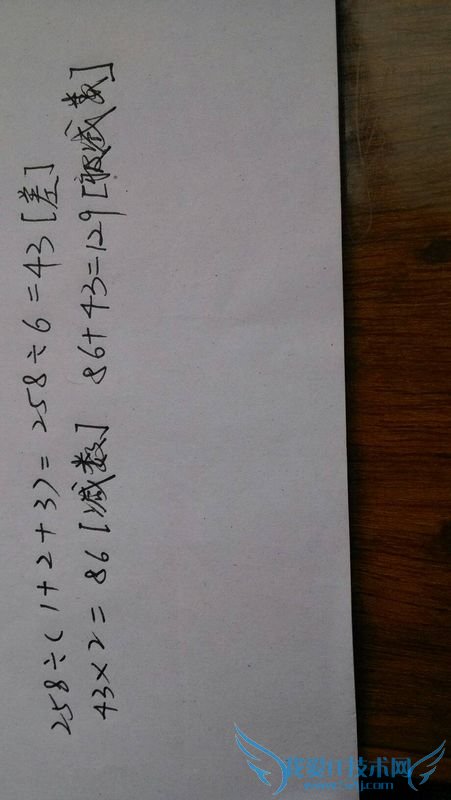 258÷(1+2+3)=258÷6=43[差]
43×2=86[减数] 86+43=129[被减数]